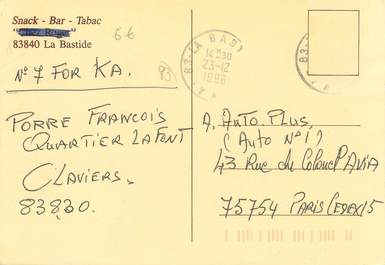 Snack - Bar - Tabac
6€
83840 La Bastide
N° 7 FOR KA.
83)
PORRE FRANCOIS
QUARTIER LAFONT
CLAVIERS.
83830.
83-LA BAST
14H30
23-12
1996
83-L
A. AUTO. PLUS.
(AUTO N°1)
43 Rue du Colonel PAVIA
75754 PARIS CEDEX 15